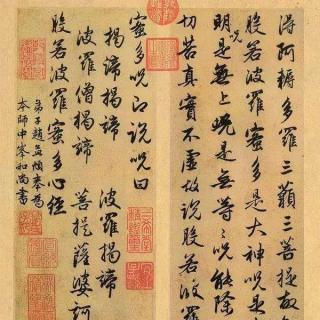 得阿耨多羅三藐三菩提故
般若波羅蜜多是大神呪是
明呪是無上呪是無等等呪能除
切苦真實不虛故說般若波羅
蜜多呪即說呪曰
揭諦揭諦 波羅揭諦
波羅僧揭諦 菩提薩婆訶
般若波羅蜜多心經
弟子趙孟頫奉為
本師中峯和尚書